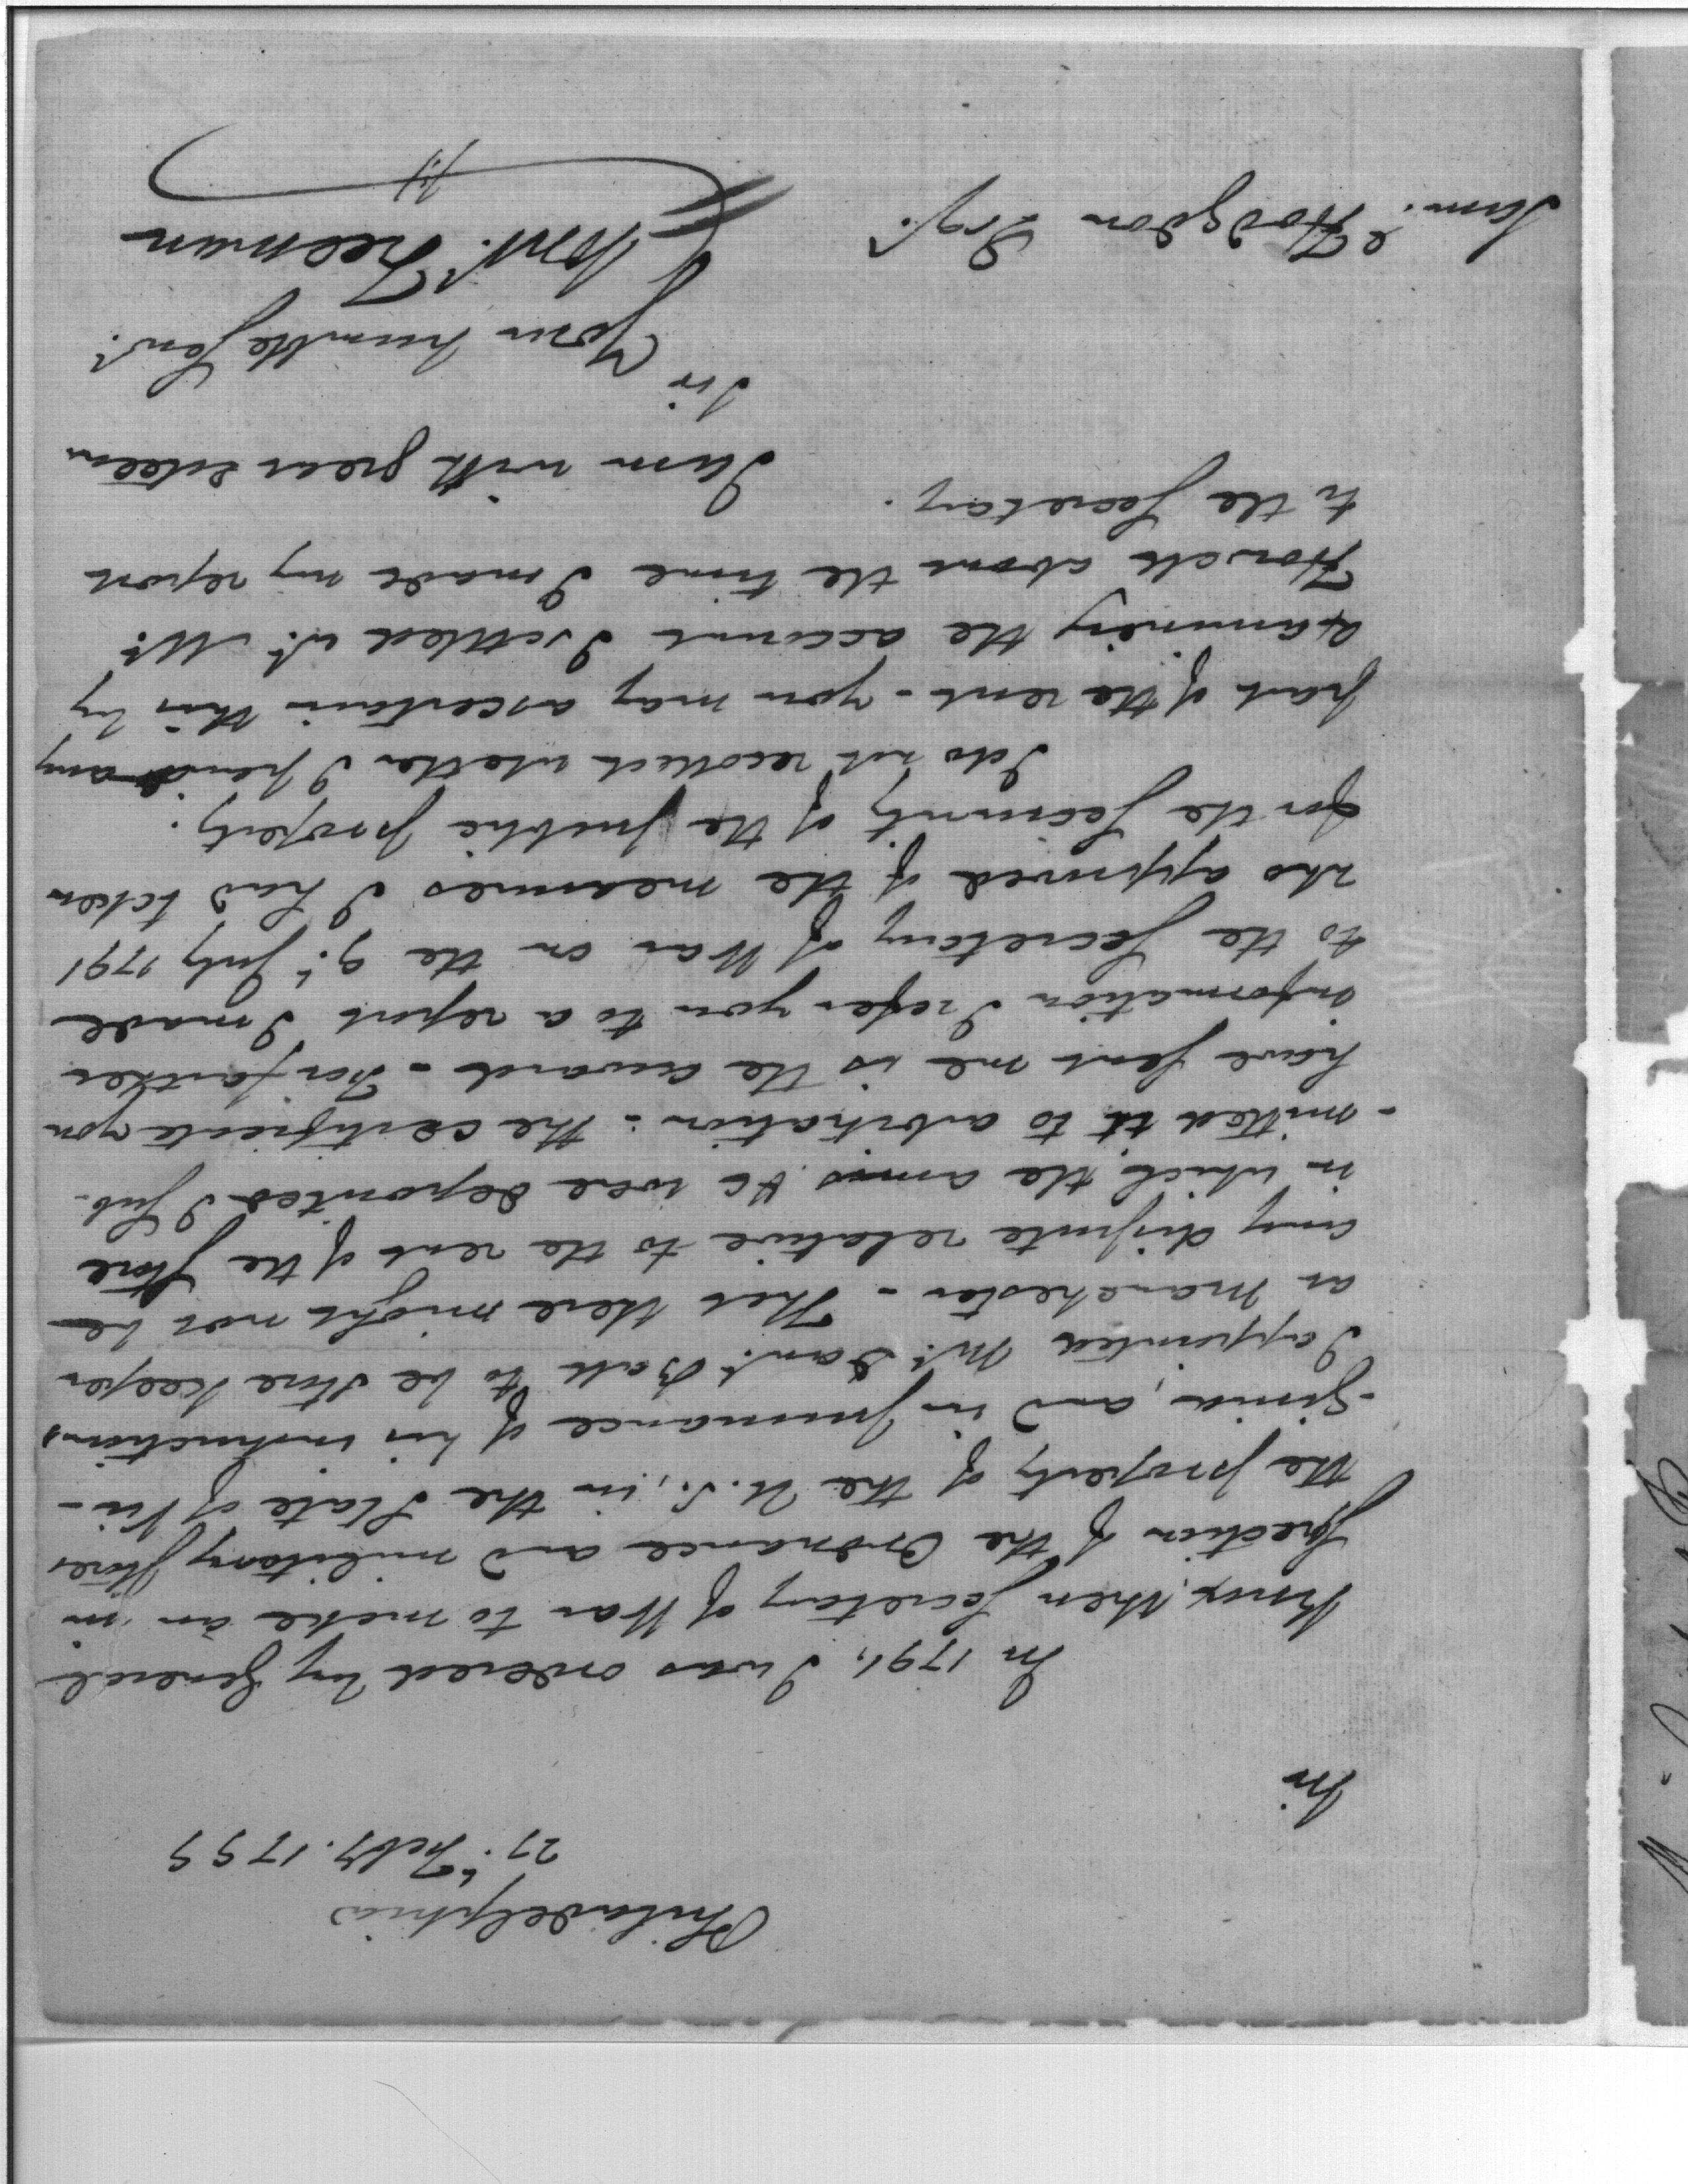 Philadelphia
27.th Feby. 1799
Sir
In 1791, I was ordered by General
Knox, then Secretary of War to make an in
spection of the Ordnance and military Stores
the property of the U.S., in the State of Vir-
-ginia, and in pursuance of his instructions
I appointed Mr. Danl. Ball to be Store keeper
at Manchester - That there might not be
any dispute relative to the rent of the Store
in which the arms &c were deposited I sub-
-mitted it to arbitration - the certificate you
have sent me is the award - For farther
information I refer you to a report I made
to the Secretary of War on the 9.th July 1791
who approved of the measures I had taken
for the security of the public property.
I do not recollect whether I paid any
part of the rent - you may ascertain this by
examining the account I settled wt. Mr.
Howell about the time I made my report
to the Secretary.
I am with great esteem
Sir
Your humble Servt.
Const. Freeman
Saml. Hodgdon Esqr.